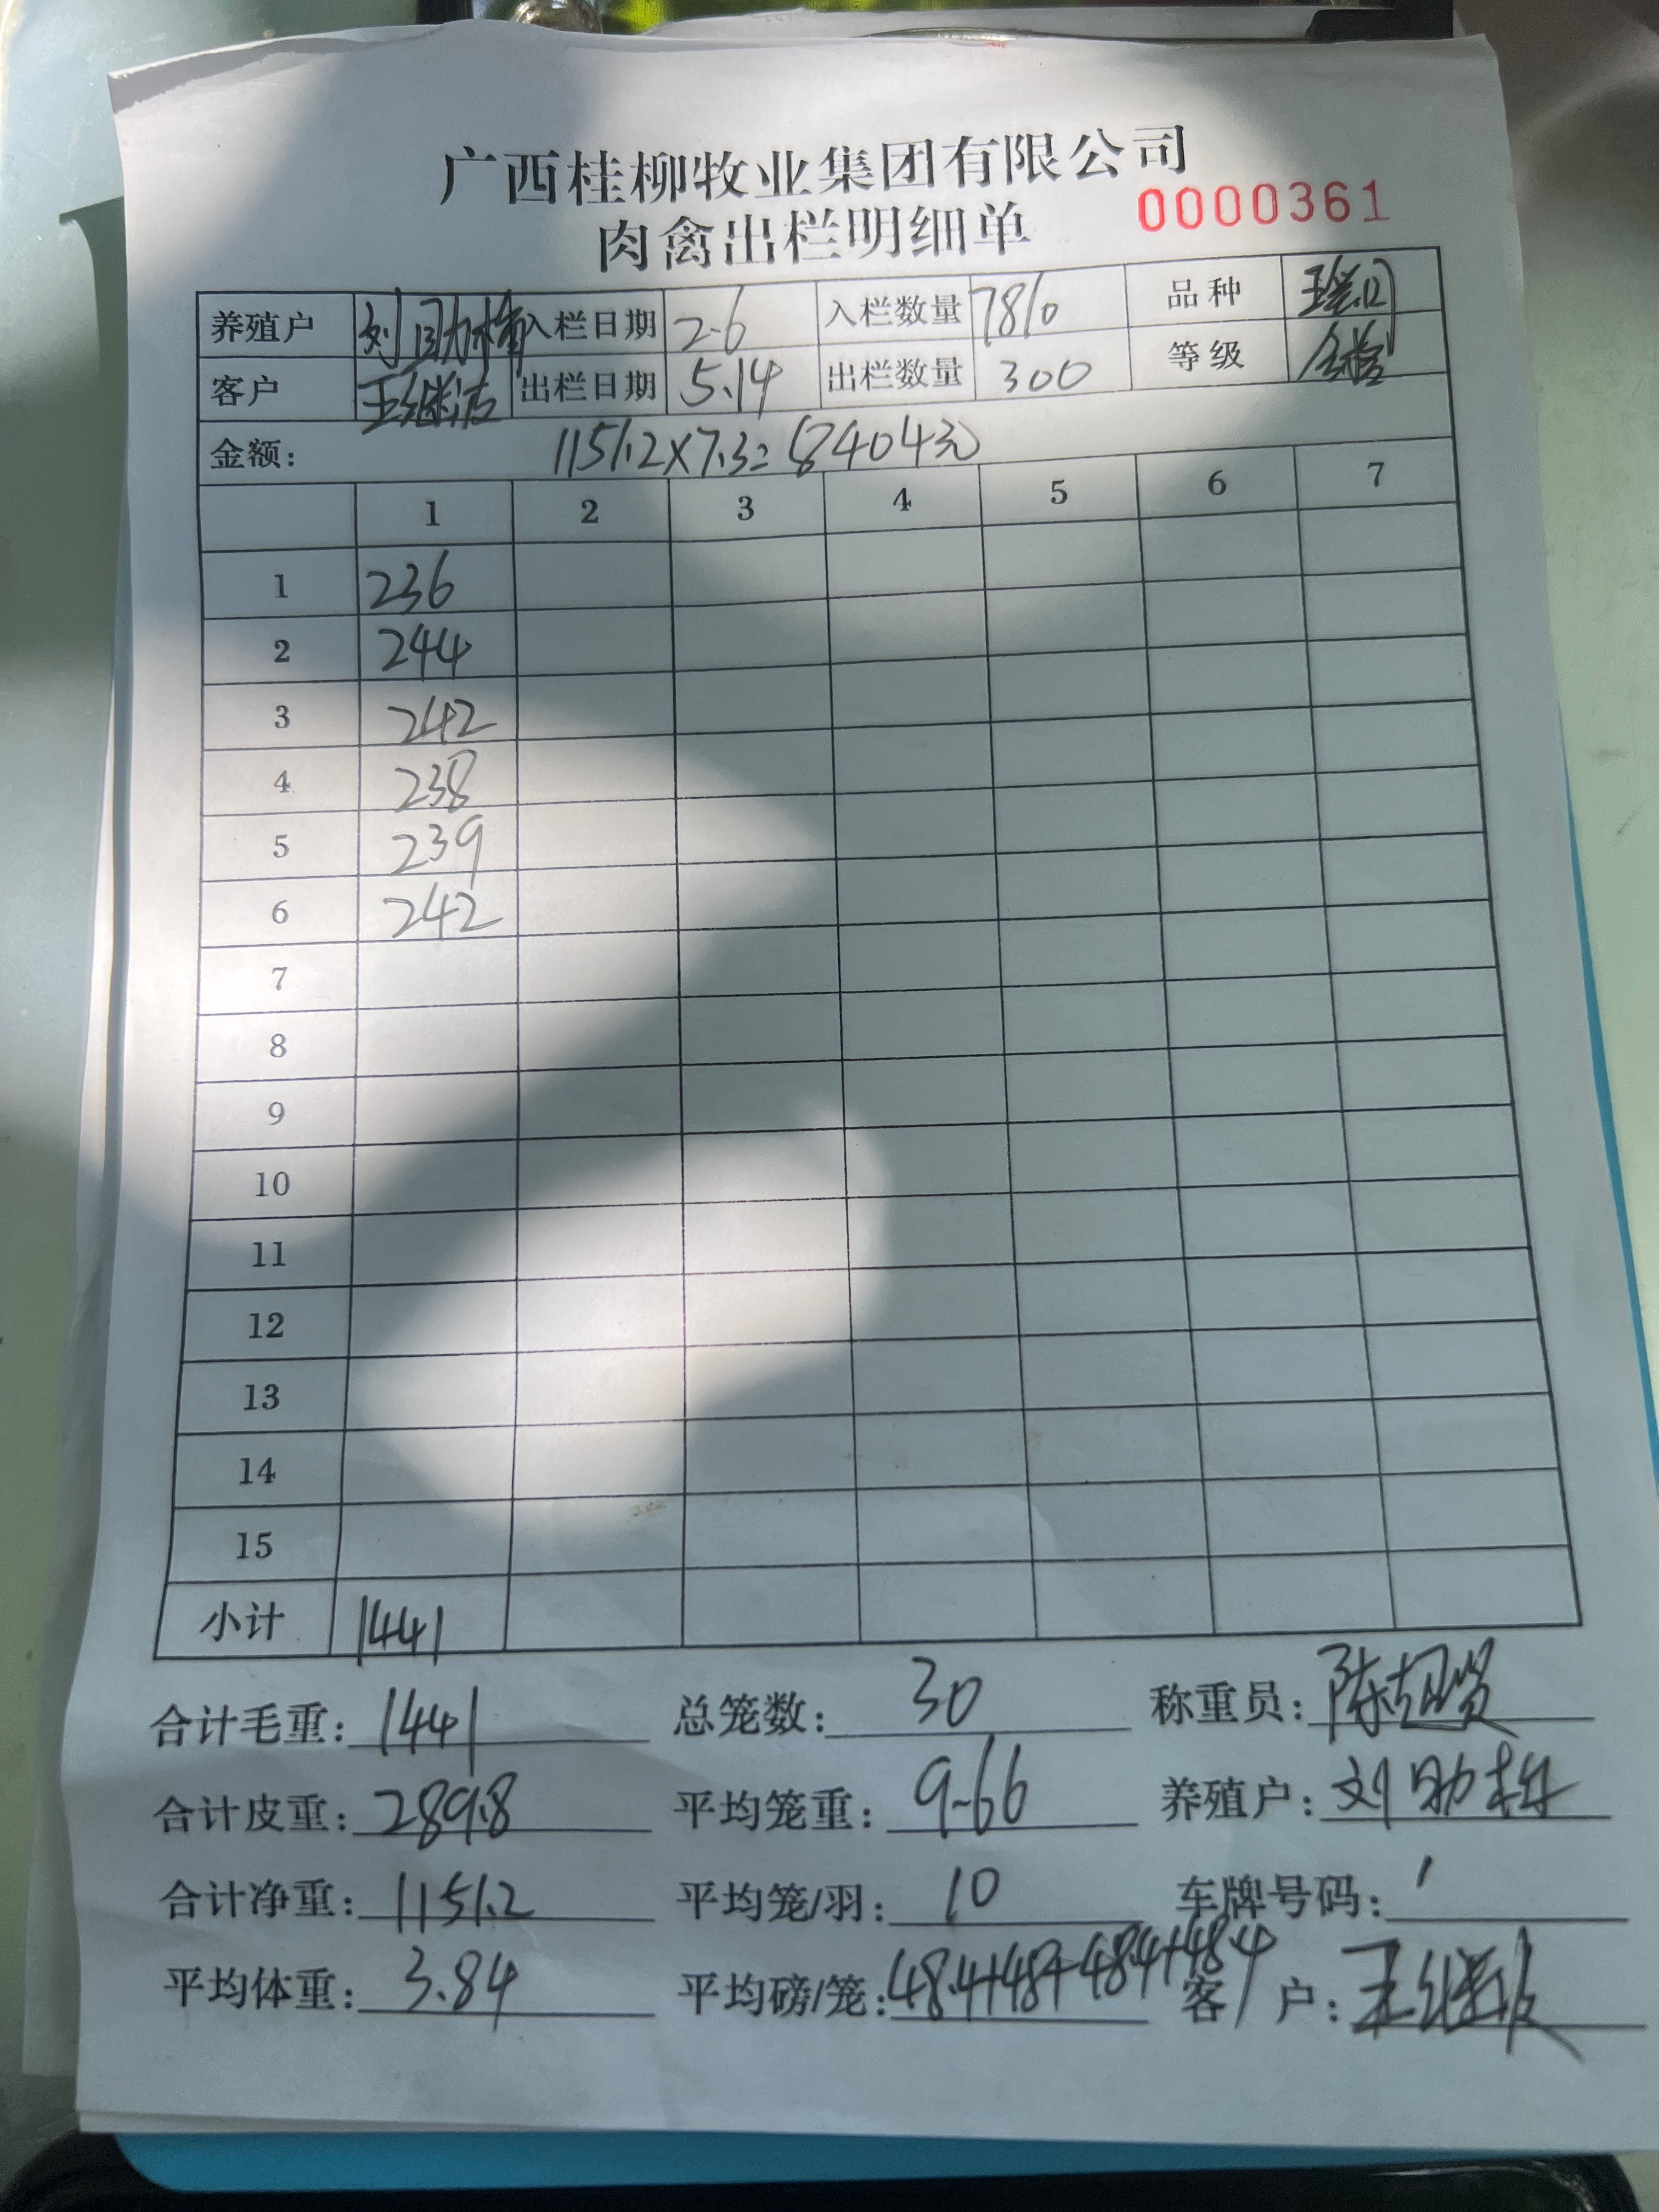 广西桂柳牧业集团有限公司
肉禽出栏明细单 0000361
养殖户 刘助 入栏日期 2-6 入栏数量 7810 品种
客户 王继 出栏日期 5.14 出栏数量 300 等级
金额: 1151.2×7.3=(8404元)
1 2 3 4 5 6 7
1 236
2 244
3 242
4 238
5 239
6 242
7
8
9
10
11
12
13
14
15
小计 1441
合计毛重: 1441 总笼数: 30 称重员: 陈超贤
合计皮重: 289.8 平均笼重: 9.66 养殖户: 刘助
合计净重: 1151.2 平均笼/羽: 10 车牌号码:
平均体重: 3.84 平均磅/笼: 48.4+48+48.4+48.4 客户: 王继